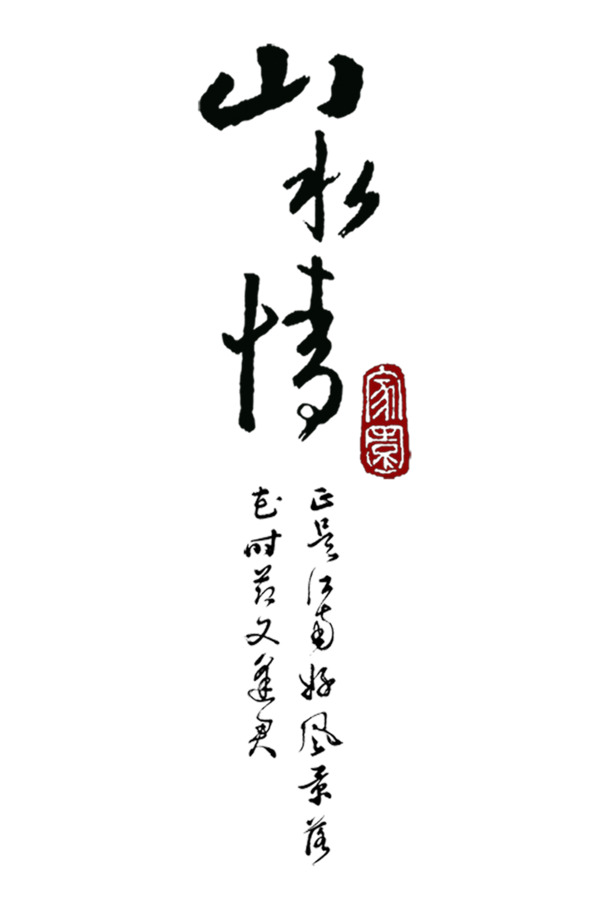 山水情
家園
正是江南好风景落
花时节又逢君